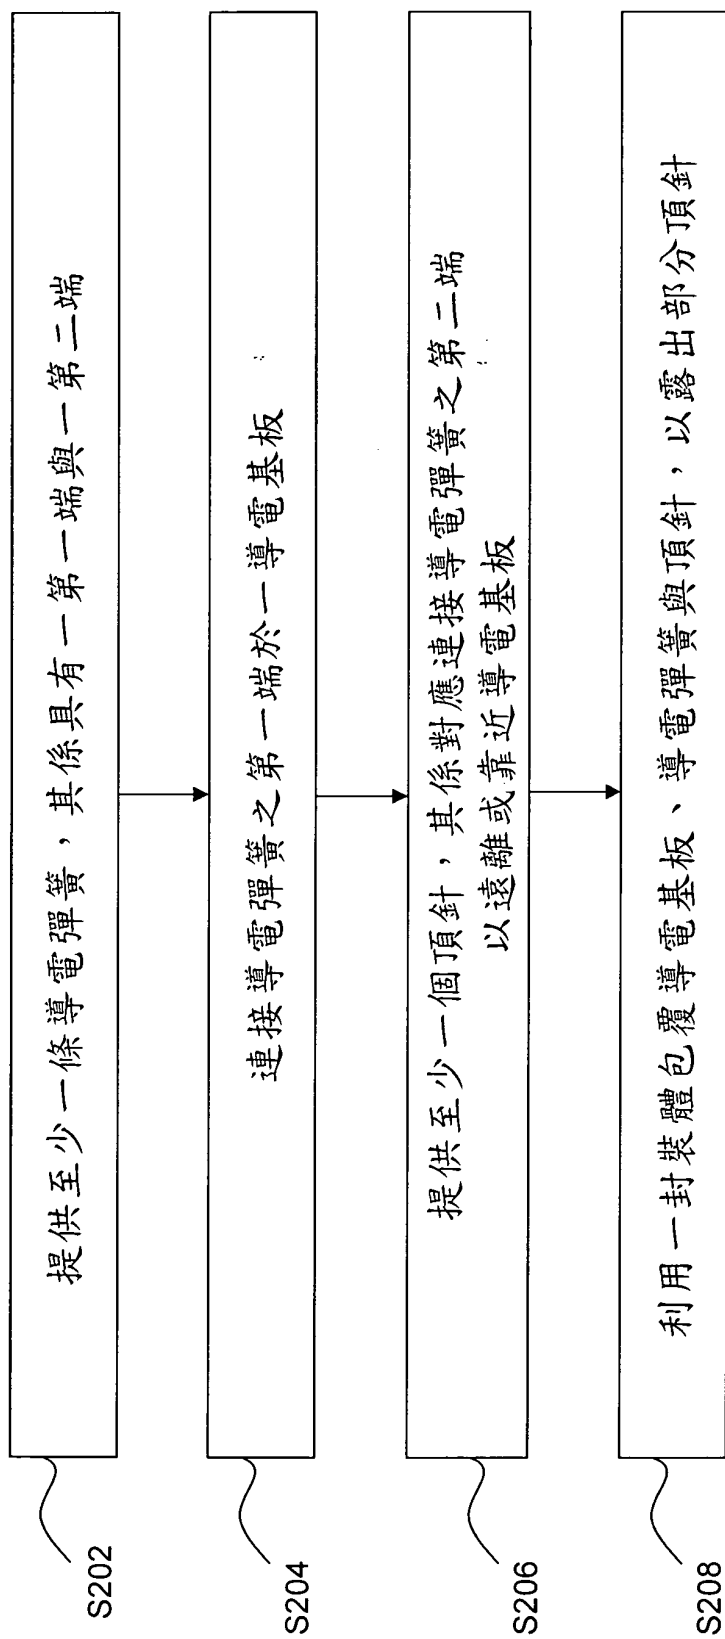 提供至少一條導電彈簧，其係具有一第一端與一第二端
S202
連接導電彈簧之第一端於一導電基板
S204
提供至少一個頂針，其係對應連接導電彈簧之第二端
以遠離或靠近導電基板
S206
利用一封裝體包覆導電基板、導電彈簧與頂針，以露出部分頂針
S208